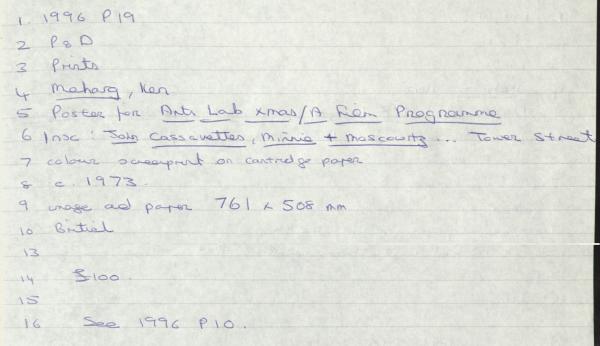 1. 1996 P19
2 P & D
3 Prints
4 Maharg, Ken
5 Poster for Arts Lab Xmas/A Film Programme
6 Insc: John Cassavettes, Minnie + Moscowitz ... Tower Street
7 colour screenprint on cartridge paper
8 c. 1973.
9 image and paper 761 x 508 mm
10 British
13
14 £100.
15
16 See 1996 P10.